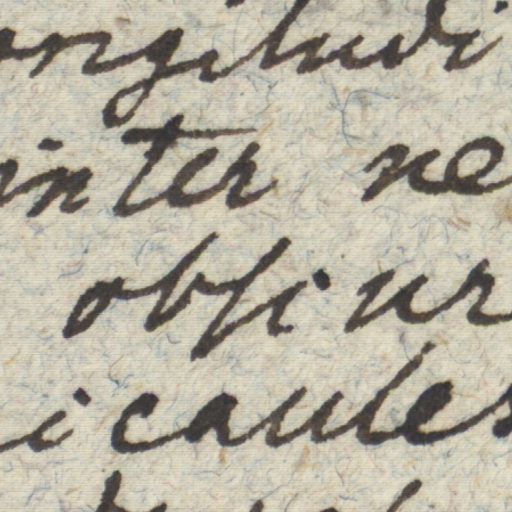 ongitudi
inter ne
obſcur
i caules